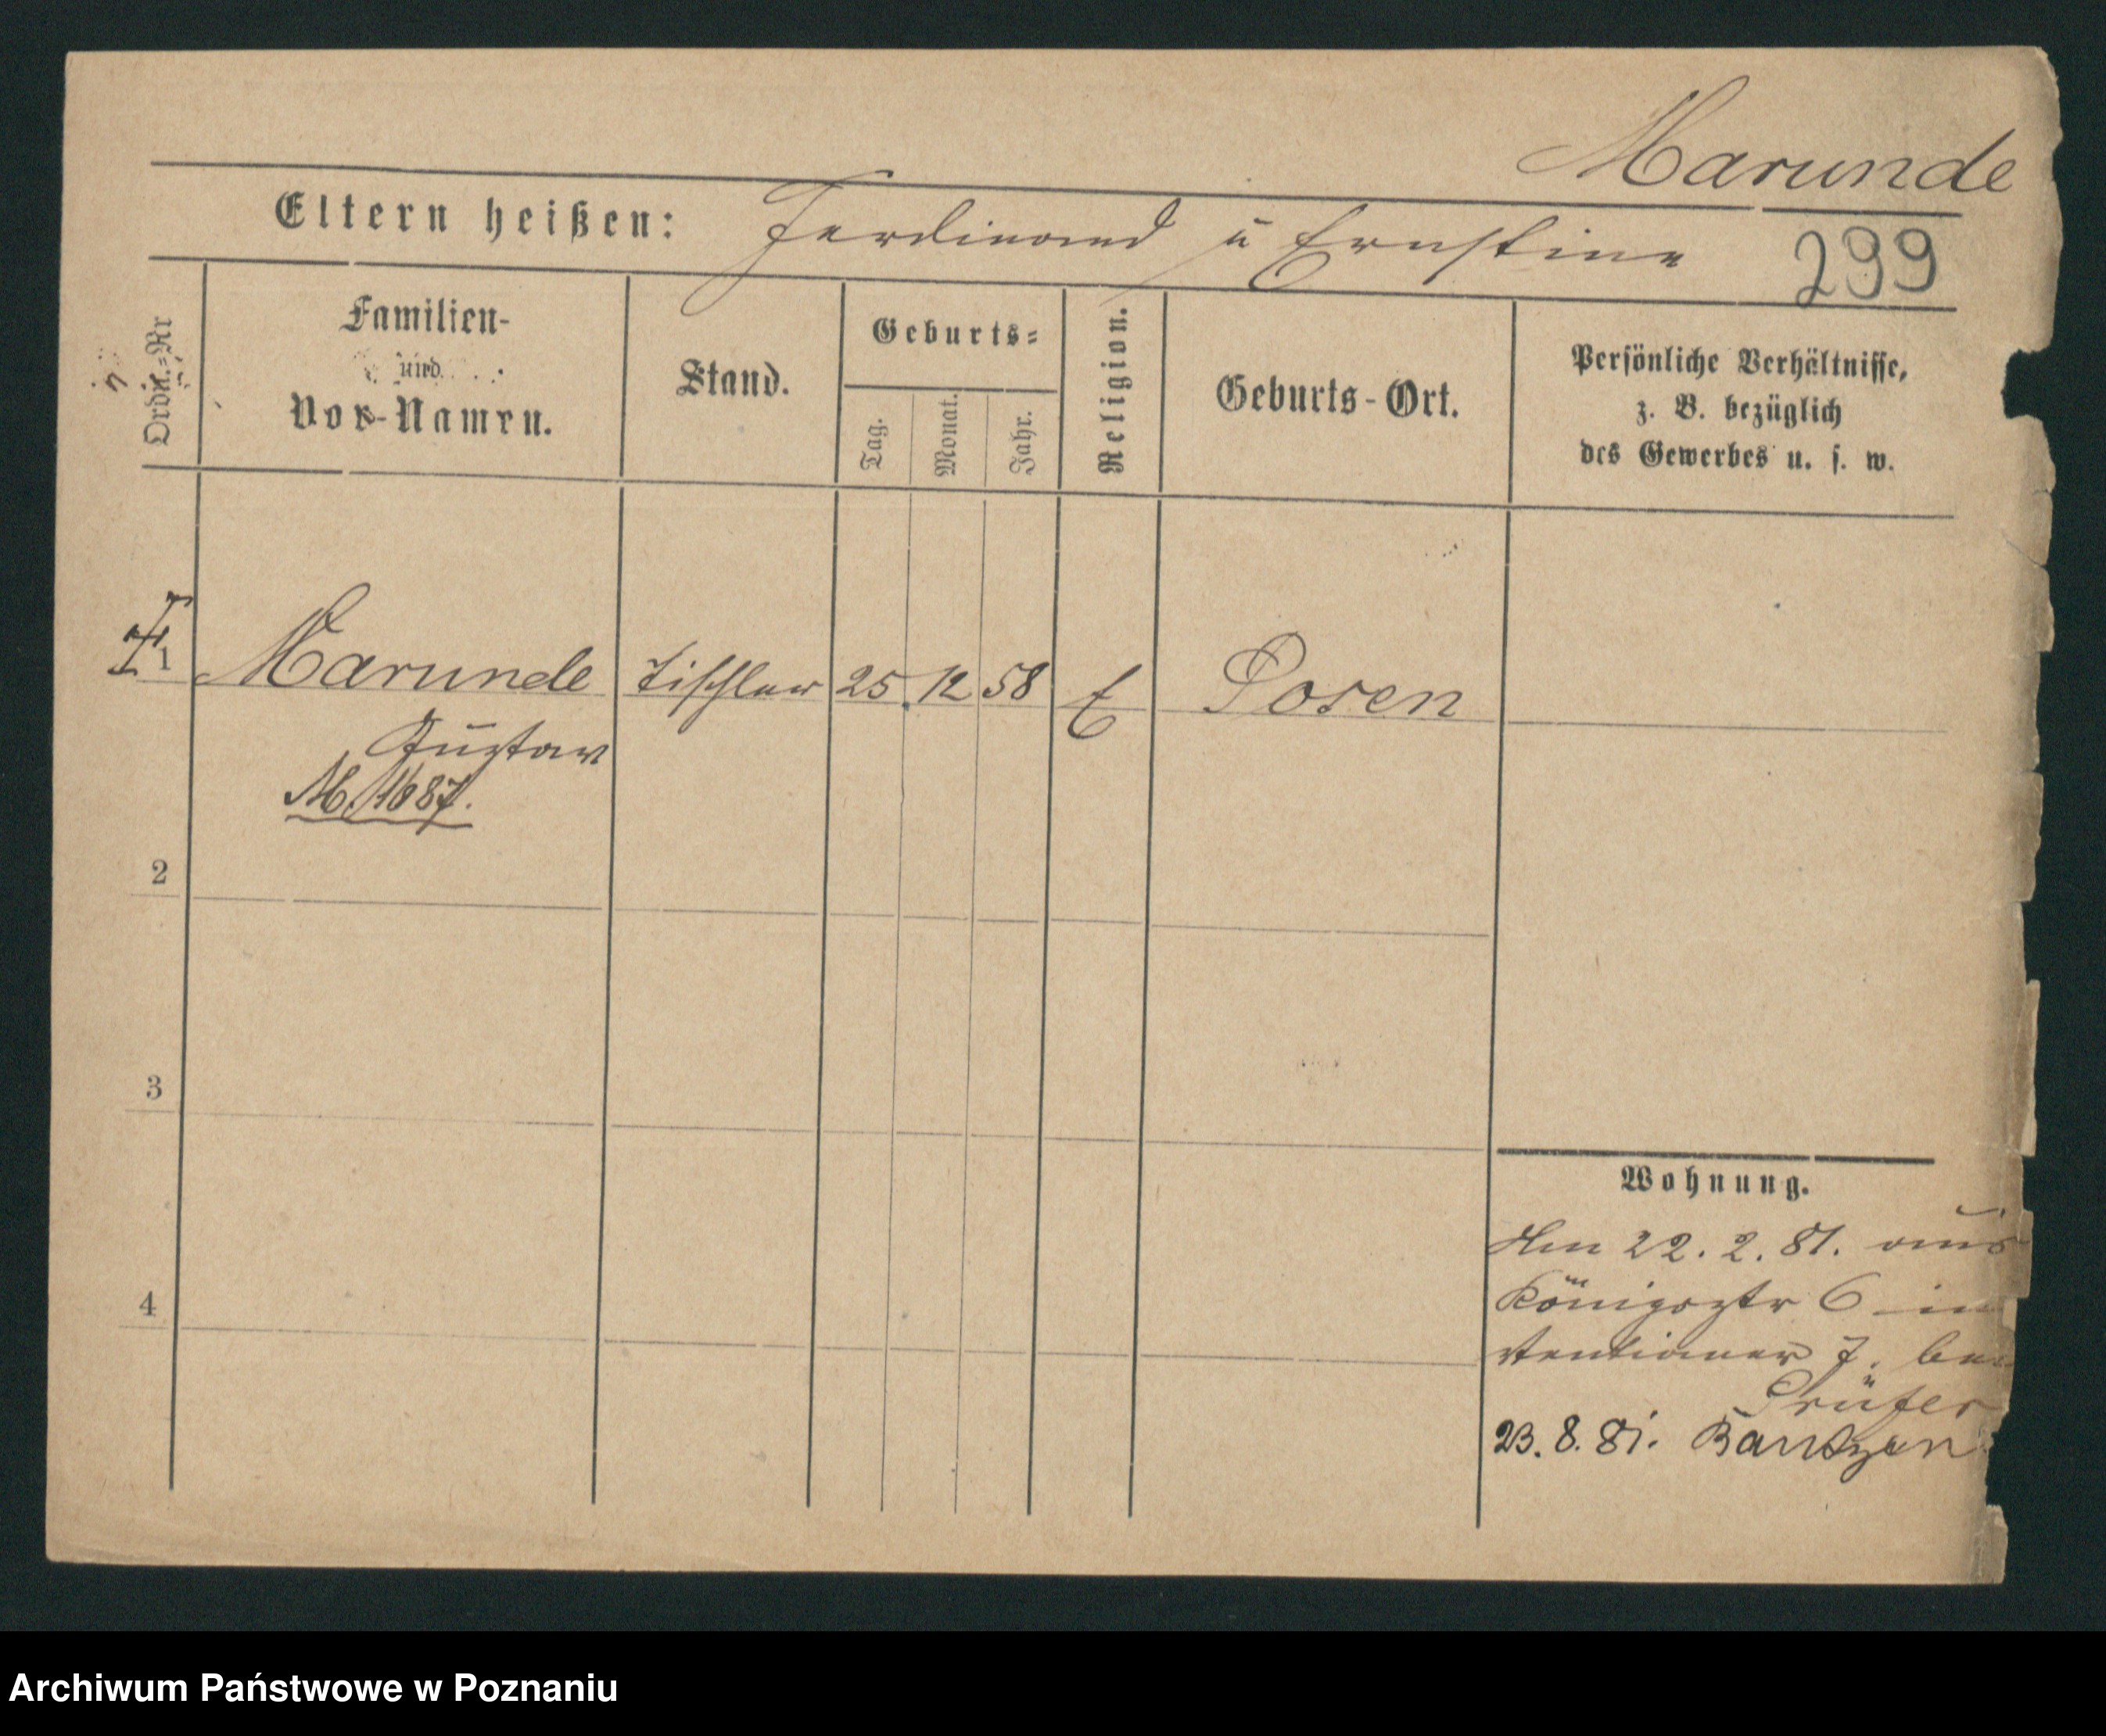 Marunde
Eltern heißen: Ferdinand u Ernstine 299
Ordn.=Nr
Familien-
und
Vor-Namen.
Stand.
Geburts=
Tag.
Monat.
Jahr.
Religion.
Geburts-Ort.
Persönliche Verhältnisse,
z. B. bezüglich
des Gewerbes u. s. w.
1 Marunde Tischler 25. 12 58 E Posen
Gustav
M. 1687.
2
3
4
Wohnung.
Am 22. 2. 81. aus
Königsstr 6 in
7. bei
Prüfer
23. 8. 81. Bautzen
Archiwum Państwowe w Poznaniu